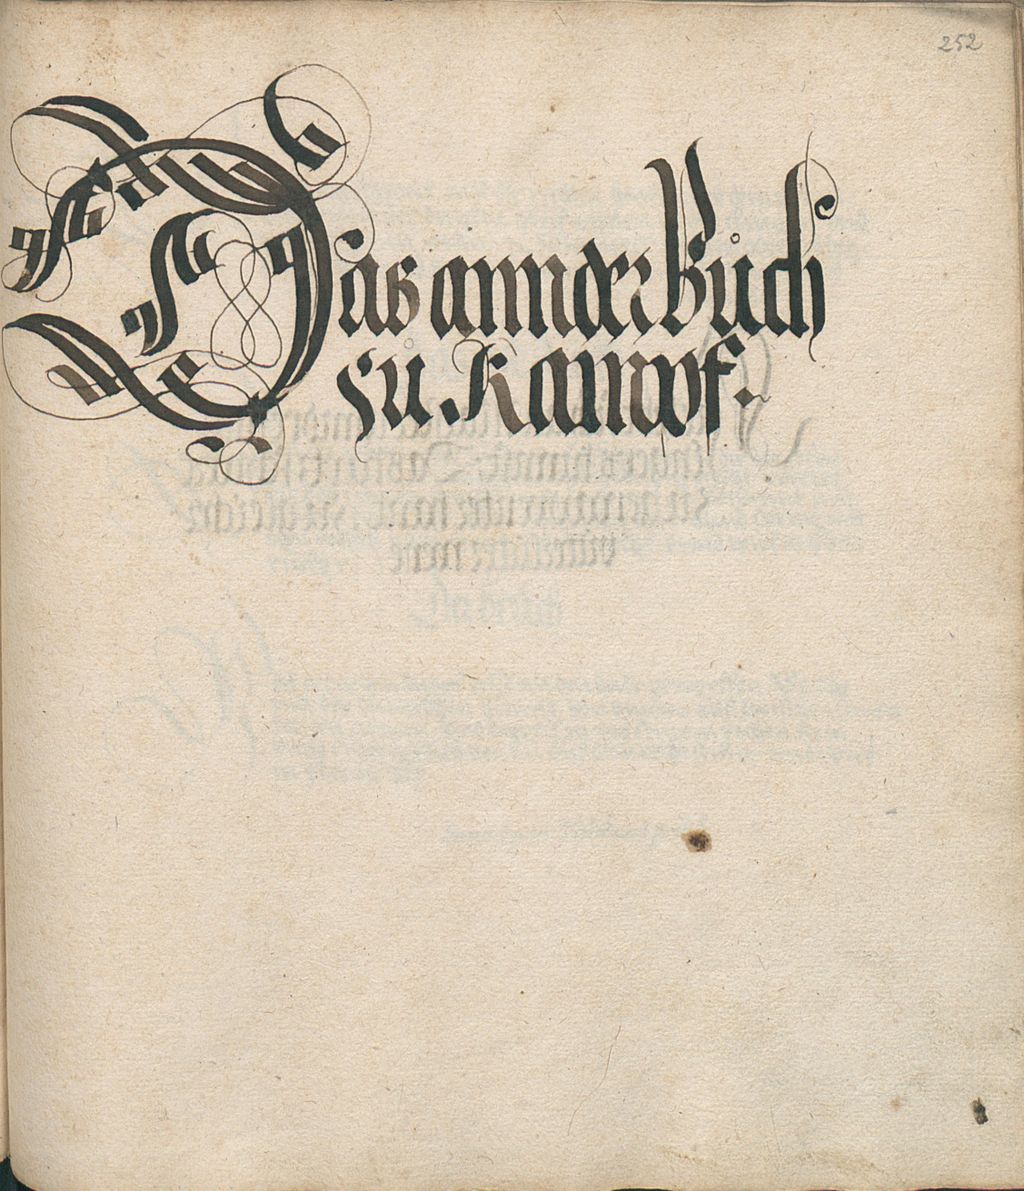 252
Das annder Bůch
zů Kampf.